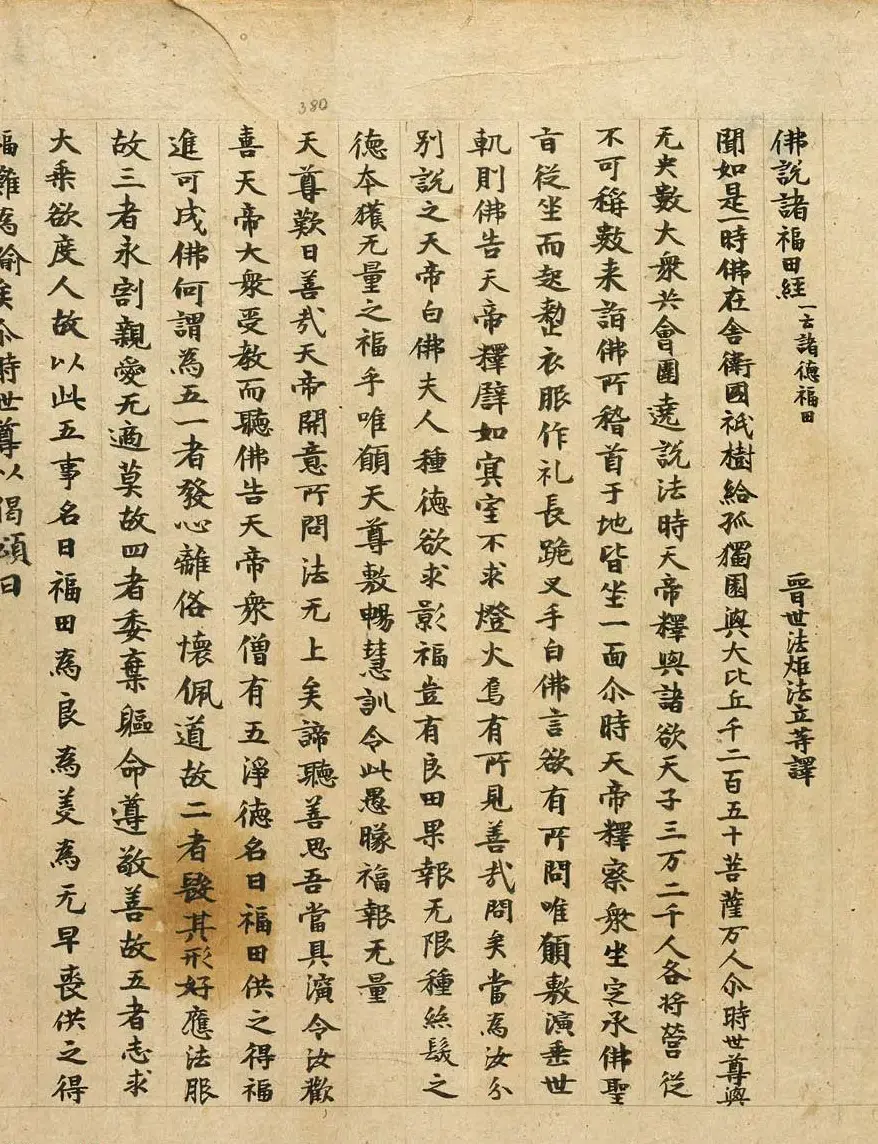 380
佛說諸福田經 一云諸德福田 晉世法炬法立等譯
聞如是一時佛在舍衛國祇樹給孤獨園與大比丘千二百五十菩薩万人尒時世尊與
无央數大衆共會圍遶說法時天帝釋與諸欲天子三万二千人各將營從
不可稱數来詣佛所稽首于地皆坐一面尒時天帝釋察衆坐定承佛聖
旨從坐而起整衣服作礼長跪叉手白佛言欲有所問唯願敷演垂世
軌則佛告天帝釋譬如冥室不求燈火焉有所見善㢤問矣當為汝分
別說之天帝白佛夫人種德欲求影福豈有良田果報无限種絲髮之
德夲獲无量之福乎唯願天尊敷暢慧訓令此愚矇福報无量
天尊歎曰善㢤天帝開意所問法无上矣諦聽善思吾當具演令汝歡
喜天帝大衆受教而聽佛告天帝衆僧有五淨德名曰福田供之得福
進可成佛何謂為五一者發心離俗懷佩道故二者毀其形好應法服
故三者永割親愛无適莫故四者委棄軀命遵敬善故五者志求
大乘欲度人故以此五事名曰福田為良為美為无早喪供之得
福難為喻矣尒時世尊以偈頌曰